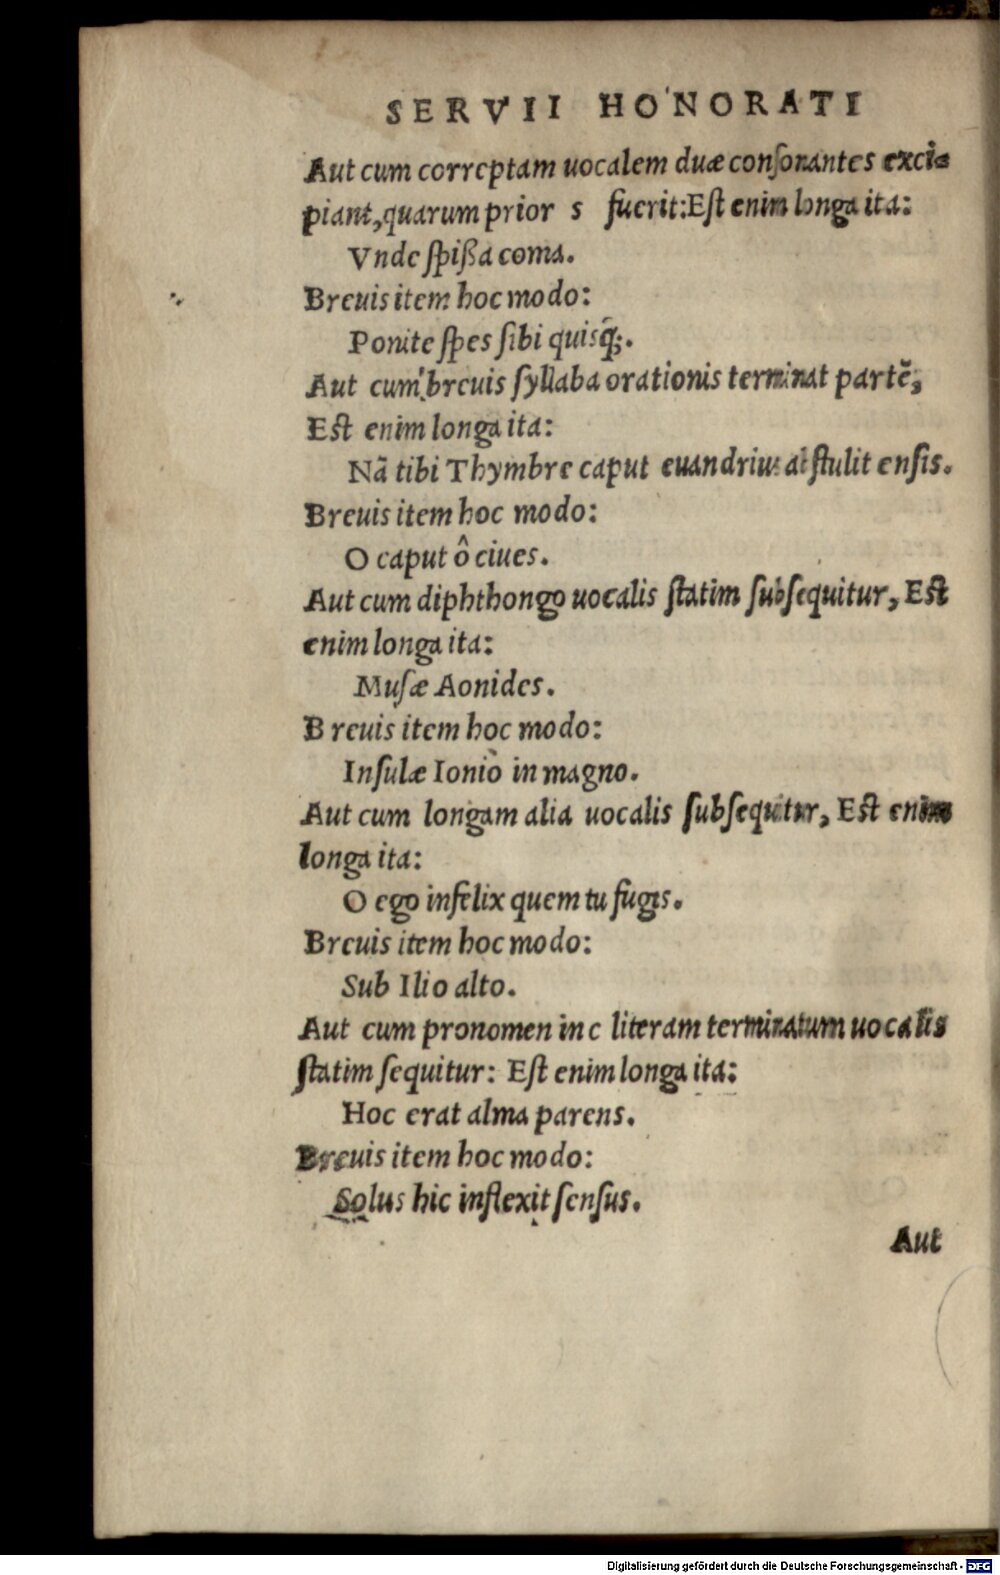 SERVII HONORATI
Aut cum correptam uocalem duæ consonantes exci=
piant, quarum prior s fuerit: Est enim longa ita:
Vnde spißa coma.
Breuis item hoc modo:
Ponite spes sibi quisq̃;.
Aut cum breuis syllaba orationis terminat partẽ,
Est enim longa ita:
Nã tibi Thymbre caput euandrius abstulit ensis.
Breuis item hoc modo:
O caput ô ciues.
Aut cum diphthongo uocalis statim subsequitur, Est
enim longa ita:
Musæ Aonides.
Breuis item hoc modo:
Insulæ Ionio in magno.
Aut cum longam alia uocalis subsequitur, Est enim
longa ita:
O ego infelix quem tu fugis.
Breuis item hoc modo:
Sub Ilio alto.
Aut cum pronomen in c literam terminatum uocalis
statim sequitur: Est enim longa ita:
Hoc erat alma parens.
Breuis item hoc modo:
Solus hic inflexit sensus.
Aut
Digitalisierung gefördert durch die Deutsche Forschungsgemeinschaft - DFG